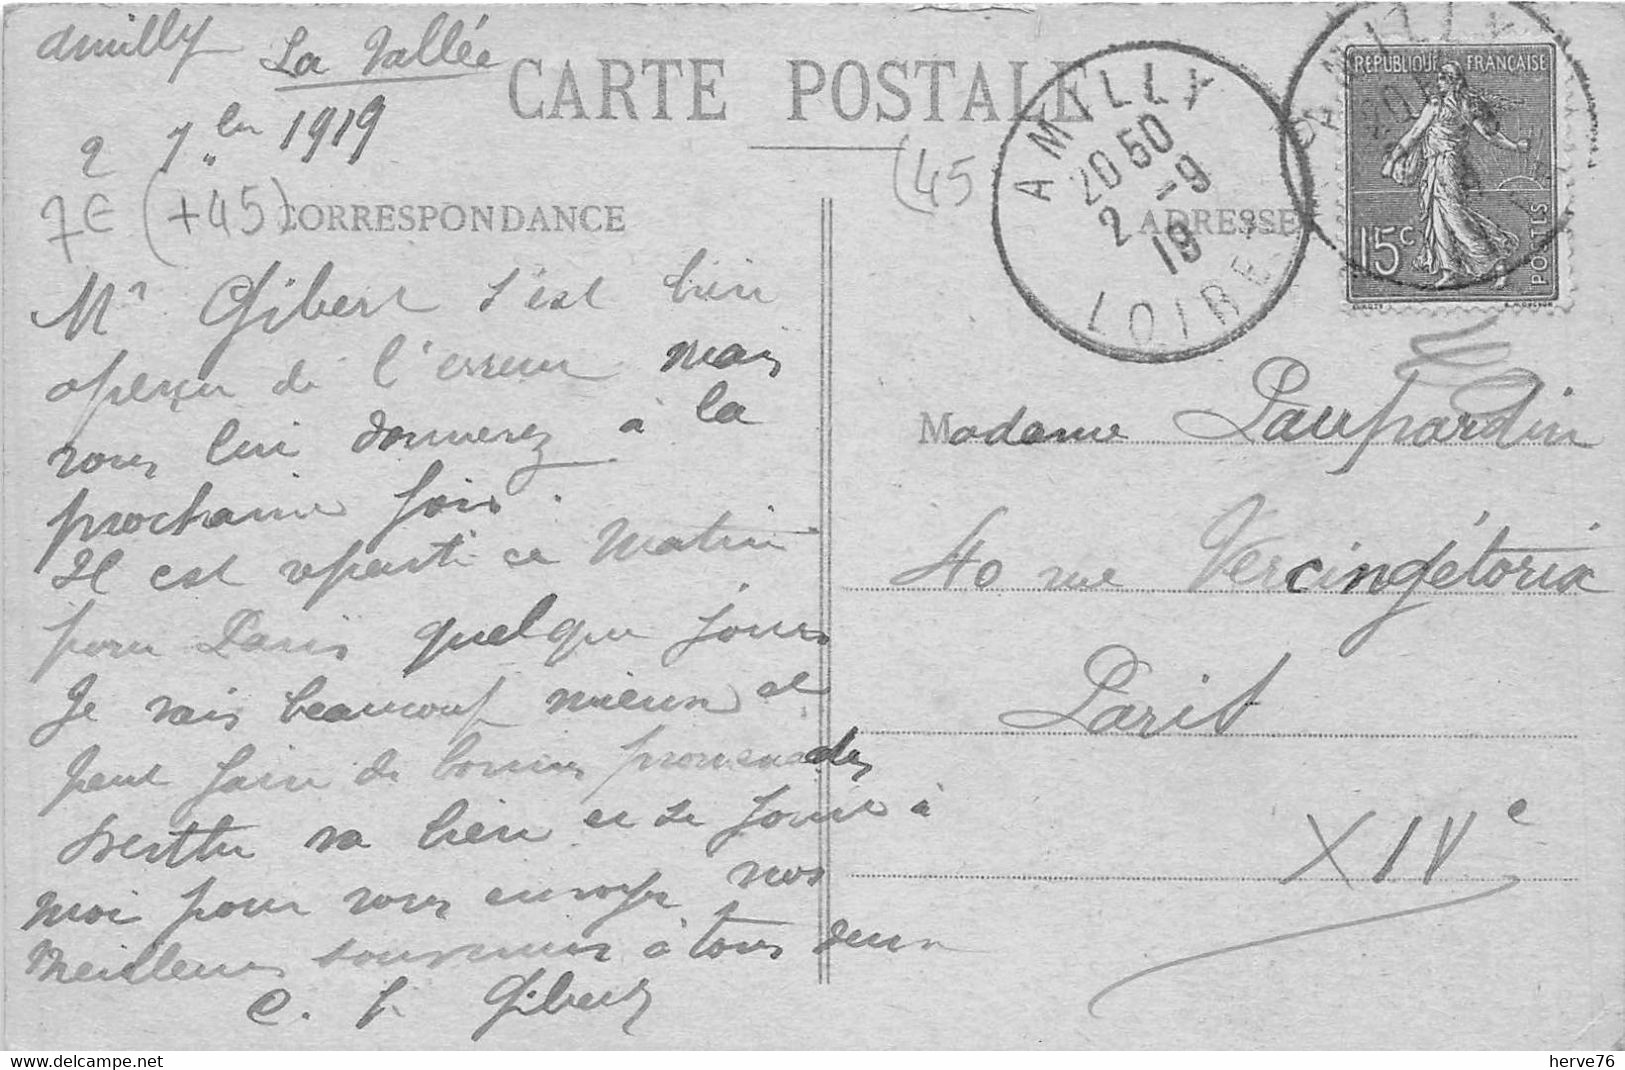 Amilly La Vallée
2 7bre 1919
CARTE POSTALE
(45
7€ (+45)
CORRESPONDANCE
ADRESSE
AMILLY
20 50
2 -9
19
LOIRET
REPUBLIQUE FRANÇAISE
15c
POSTES
Mr Gibert s'est bien
aperçu de l'erreur mais
vous lui donnerez à la
prochaine fois.
Il est reparti ce matin
pour Paris quelque jours
Je vais beaucoup mieux et
peut faire de bonnes promenades
va bien et se joint à
moi pour vous envoyer nos
meilleurs souvenirs à tous deux
C. Gibert
Madame Paupardin
40 rue Vercingétorix
Paris
XIVe
herve76
delcampe.net